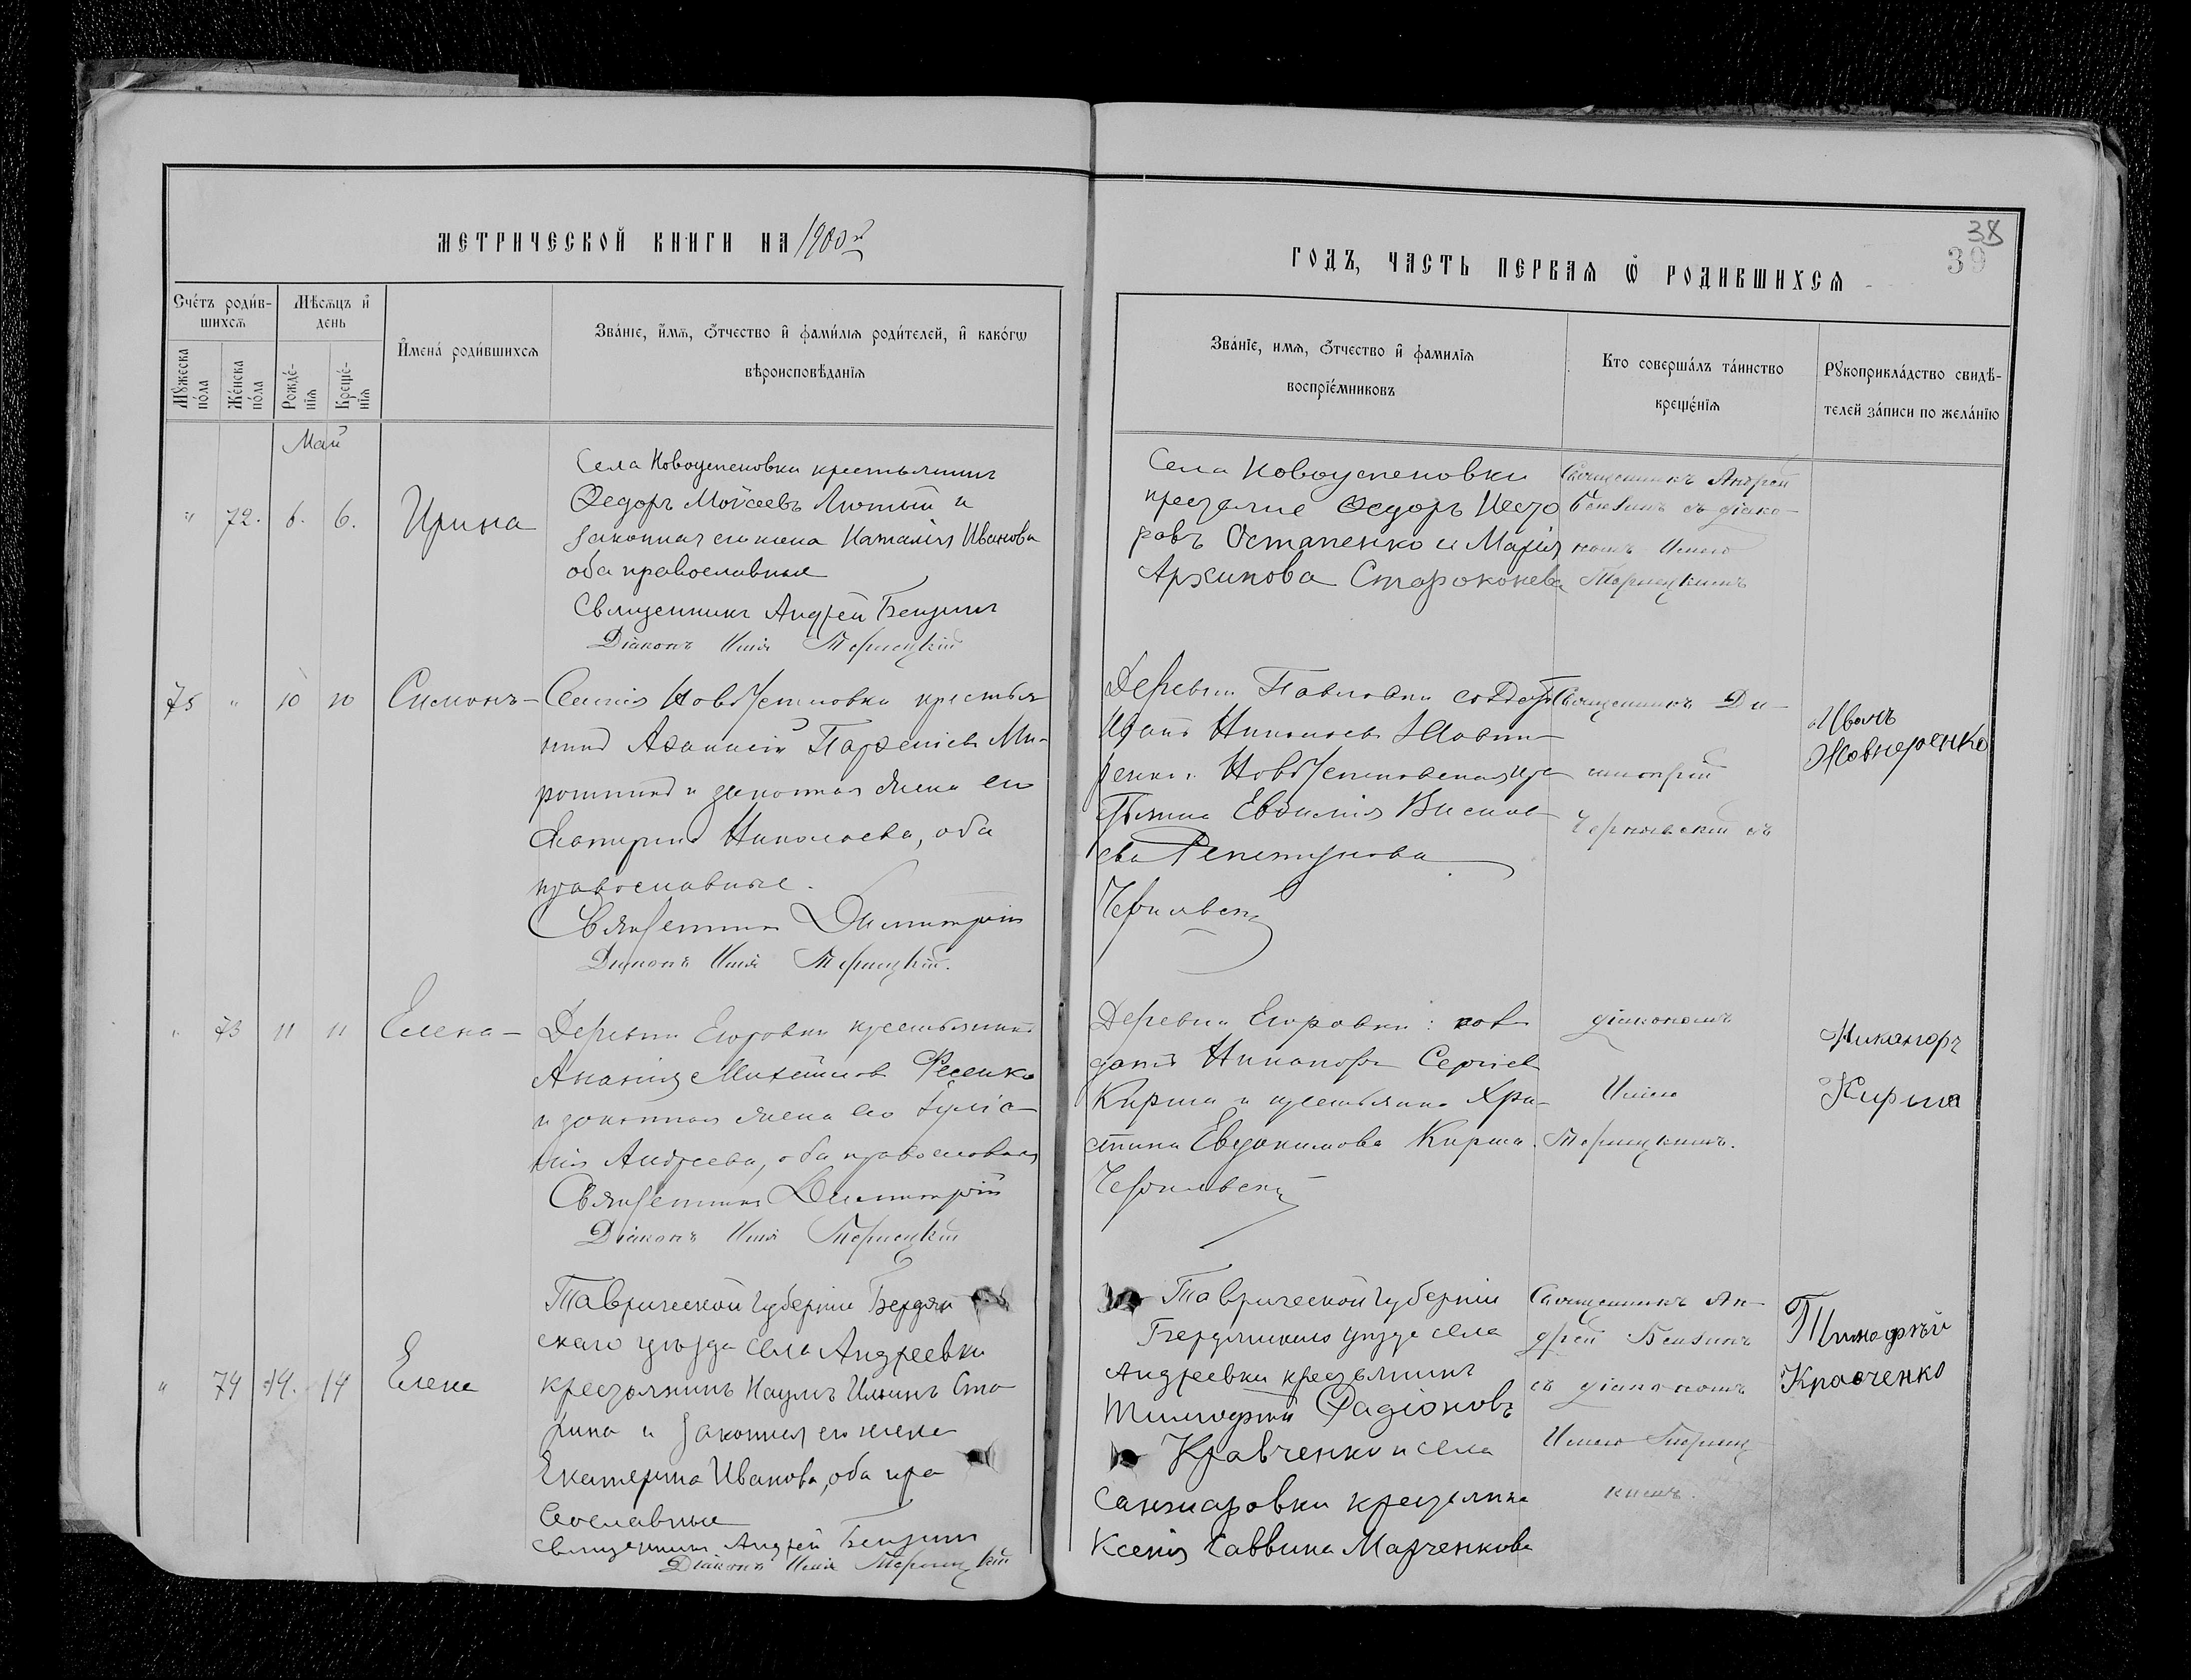 МЕТРИЧЕСКОЙ КНИГИ НА 1900й
ГОДЪ, ЧАСТЬ ПЕРВАЯ Ѿ РОДИВШИХСЯ
38
39
Счетъ родив-
шихся
Мужеска пола
Женска пола
Мѣсяцъ и
день
Рожде-
нія
Креще-
нія
Имена родившихся
Званіе, имя, отчество и фамилія родителей, и какогѡ
вѣроисповѣданія
Званіе, имя, отчество и фамилія
воспріемниковъ
Кто совершалъ таинство
крещенія
Рукоприкладство свидѣ-
телей записи по желанію
Май
" 72. 6. 6. Ирина
Села Новоуспеновки крестьянинъ
Ѳедоръ Мойсеевъ Лютый и
законная его жена Наталія Иванова
оба православные
Священникъ Андрей Бензинъ
Діаконъ Илія Терлецкій
Села Новоуспеновки
Ѳедоръ
Остапенко и Марія
Архипова Староконева
Священникъ Андрей
Бензинъ съ діако-
номъ Иліею
Терлецкимъ
75 " 10 10 Симонъ
Селенія НовоУспеновки крестья-
нинъ Аѳанасій Парѳеніевъ Ми-
и законная жена его
Екатерина Николаева, оба
православные.
Священникъ Димитрій
Діаконъ Илія Терлецкій.
Деревни Павловки солдатъ
Иванъ Николаевъ Жовни-
ренко и НовоУспеновская кре-
стьянка Евдокія Василь-
ева
Чернявскій
Священникъ Ди-
митрій
Чернявскій съ
Иванъ
Жовнеренко
" 73 11 11 Елена
Деревни Егоровки крестьянинъ
Ананія Михайловъ Фесенко
и законная жена его Іуліа-
нія Андреева, оба православные
Священникъ Димитрій
Діаконъ Илія Терлецкій
Деревни Егоровки: сол-
датъ Никаноръ Сергіевъ
Кирша и крестьянка Хри-
стина Евдокимова Кирша.
Чернявскій
діакономъ
Иліею
Терлецкимъ.
Никаноръ
Кирша
" 74 14. 14 Елена
Таврической губерніи Бердян
скаго уѣзда села Андреевки
крестьянинъ Наумъ Ильинъ Ста
рина и законная его жена
Екатерина Иванова, оба пра
вославные
Священникъ Андрей Бензинъ
Діаконъ Илія Терлецкій
Таврической губерніи
Бердянскаго уѣзда села
Андреевки крестьянинъ
Тимоѳей Радіоновъ
Кравченко и села
Санжаровки крестьянка
Ксенія Саввина Марченкова
Священникъ Ан-
дрей Бензинъ
съ діакономъ
Иліею Терлец-
кимъ.
Тимофѣй
Кравченко